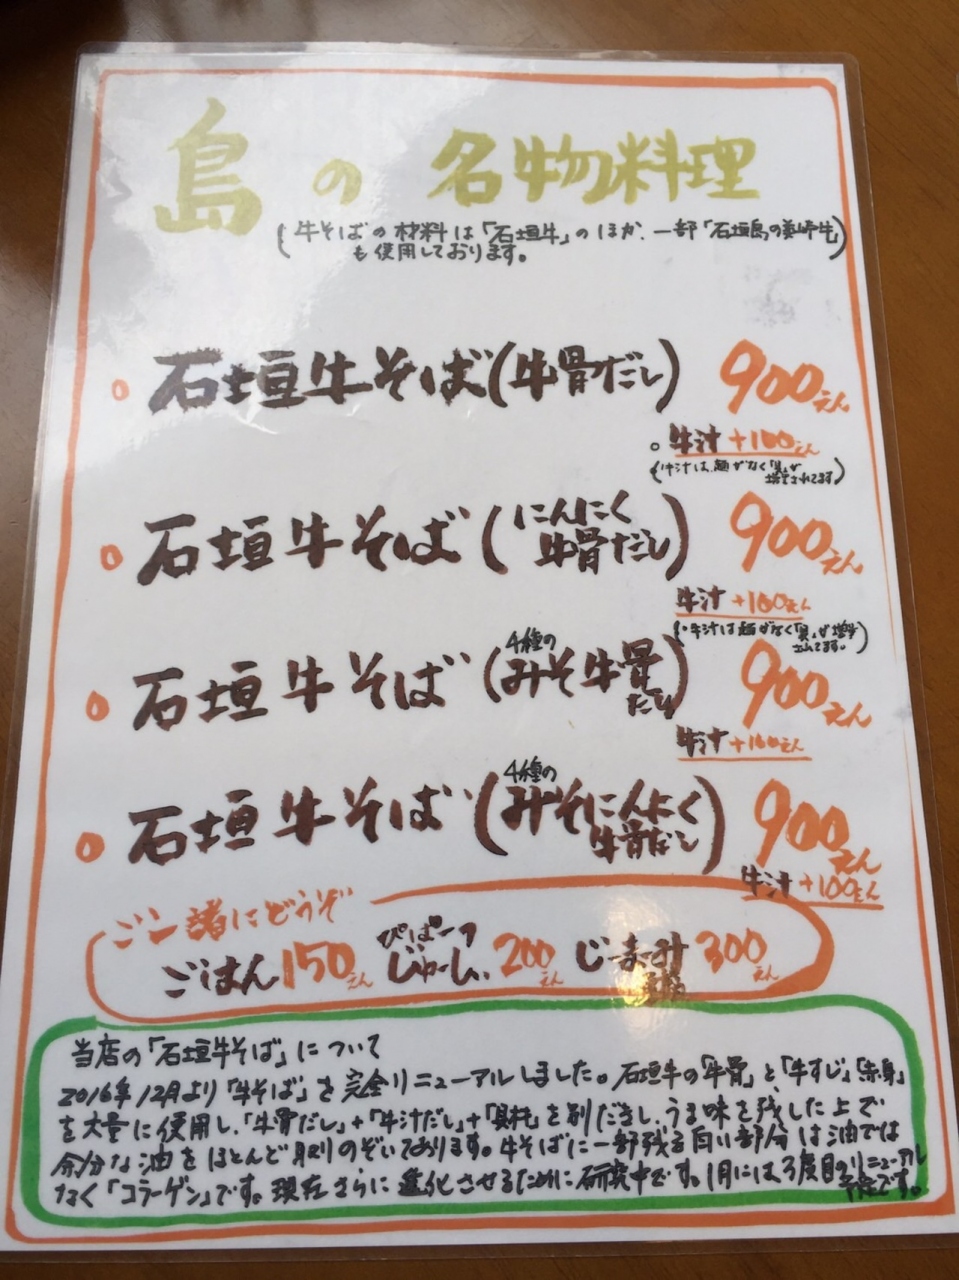 島の名物料理
(牛そばの材料は「石垣牛」のほか、一部「石垣島の美崎牛」
も使用しております。)
石垣牛そば(牛骨だし) 900えん
。牛汁 +100えん
(牛汁は、麺がなく「具」が
増量されてます)
石垣牛そば(にんにく牛骨だし) 900えん
牛汁 +100えん
(・牛汁は麺がなく「具」が増量
されてます。)
石垣牛そば(4種のみそ牛骨だし) 900えん
牛汁 +100えん
石垣牛そば(4種のみそにんにく牛骨だし) 900えん
牛汁 +100えん
ご一諸にどうぞ
ごはん150えん ぴぱーつじゅーしぃ200えん じーまーみ 300えん
当店の「石垣牛そば」について
2016年12月より「牛そば」を完全リニューアルしました。石垣牛の「牛骨」と「牛すじ」「赤身」
を大量に使用し、「牛骨だし」+「牛汁だし」+「具材」を別だきし、うま味を残した上で
余分な油をほとんど取りのぞいております。牛そばに一部残る白い部分は油では
なく「コラーゲン」です。現在さらに進化させるために研究中です。1月には3度目のリニューアル
予定です。